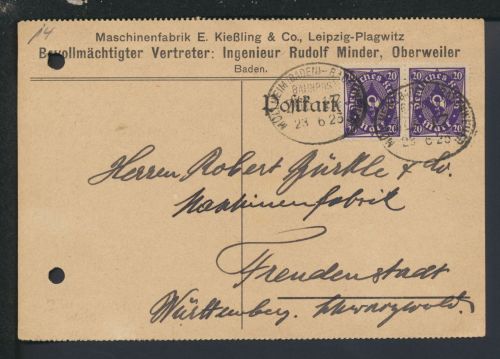 14
Maschinenfabrik E. Kießling & Co., Leipzig-Plagwitz
Bevollmächtigter Vertreter: Ingenieur Rudolf Minder, Oberweiler
Baden.
MÜLLHEIM (BADEN)
BAHNPOST
23 6 23
20 Deutsches Reich 20
20 Mark 20
20 Deutsches Reich 20
20 Mark 20
23 6 23
Postkar
Herren Robert Bürkle & Co.
Maschinenfabrik
Freudenstadt
Württemberg. Schwarzwald.